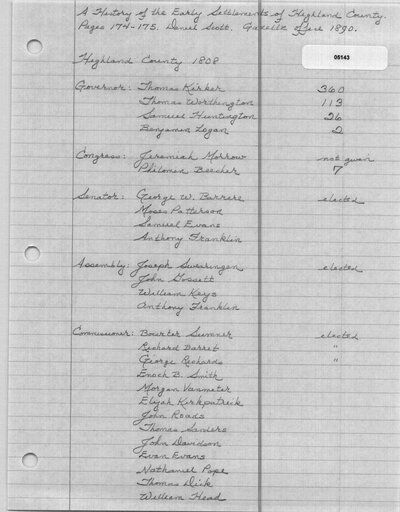 A History of the Early Settlements of Highland County.
Pages 174-175. Daniel Scott. Gazette Office 1890.
05143
Highland County 1808
Governor: Thomas Kirker 360
Thomas Worthington 113
Samuel Huntington 26
Benjamin Logan 2
Congress: Jeremiah Morrow not given
Philomen Beecher 7
Senator: George W. Barrere elected
Moses Patterson
Samuel Evans
Anthony Franklin
Assembly: Joseph Swearingen elected
John Gossett
William Keys
Anthony Franklin
Commissioner: Bourter Sumner elected
Richard Barret "
George Richards "
Enoch B. Smith
Morgan Vanmeter
Elijah Kirkpatrick
John Roads
Thomas Sanders
John Davidson
Evan Evans
Nathaniel Pope
Thomas Dick
William Head